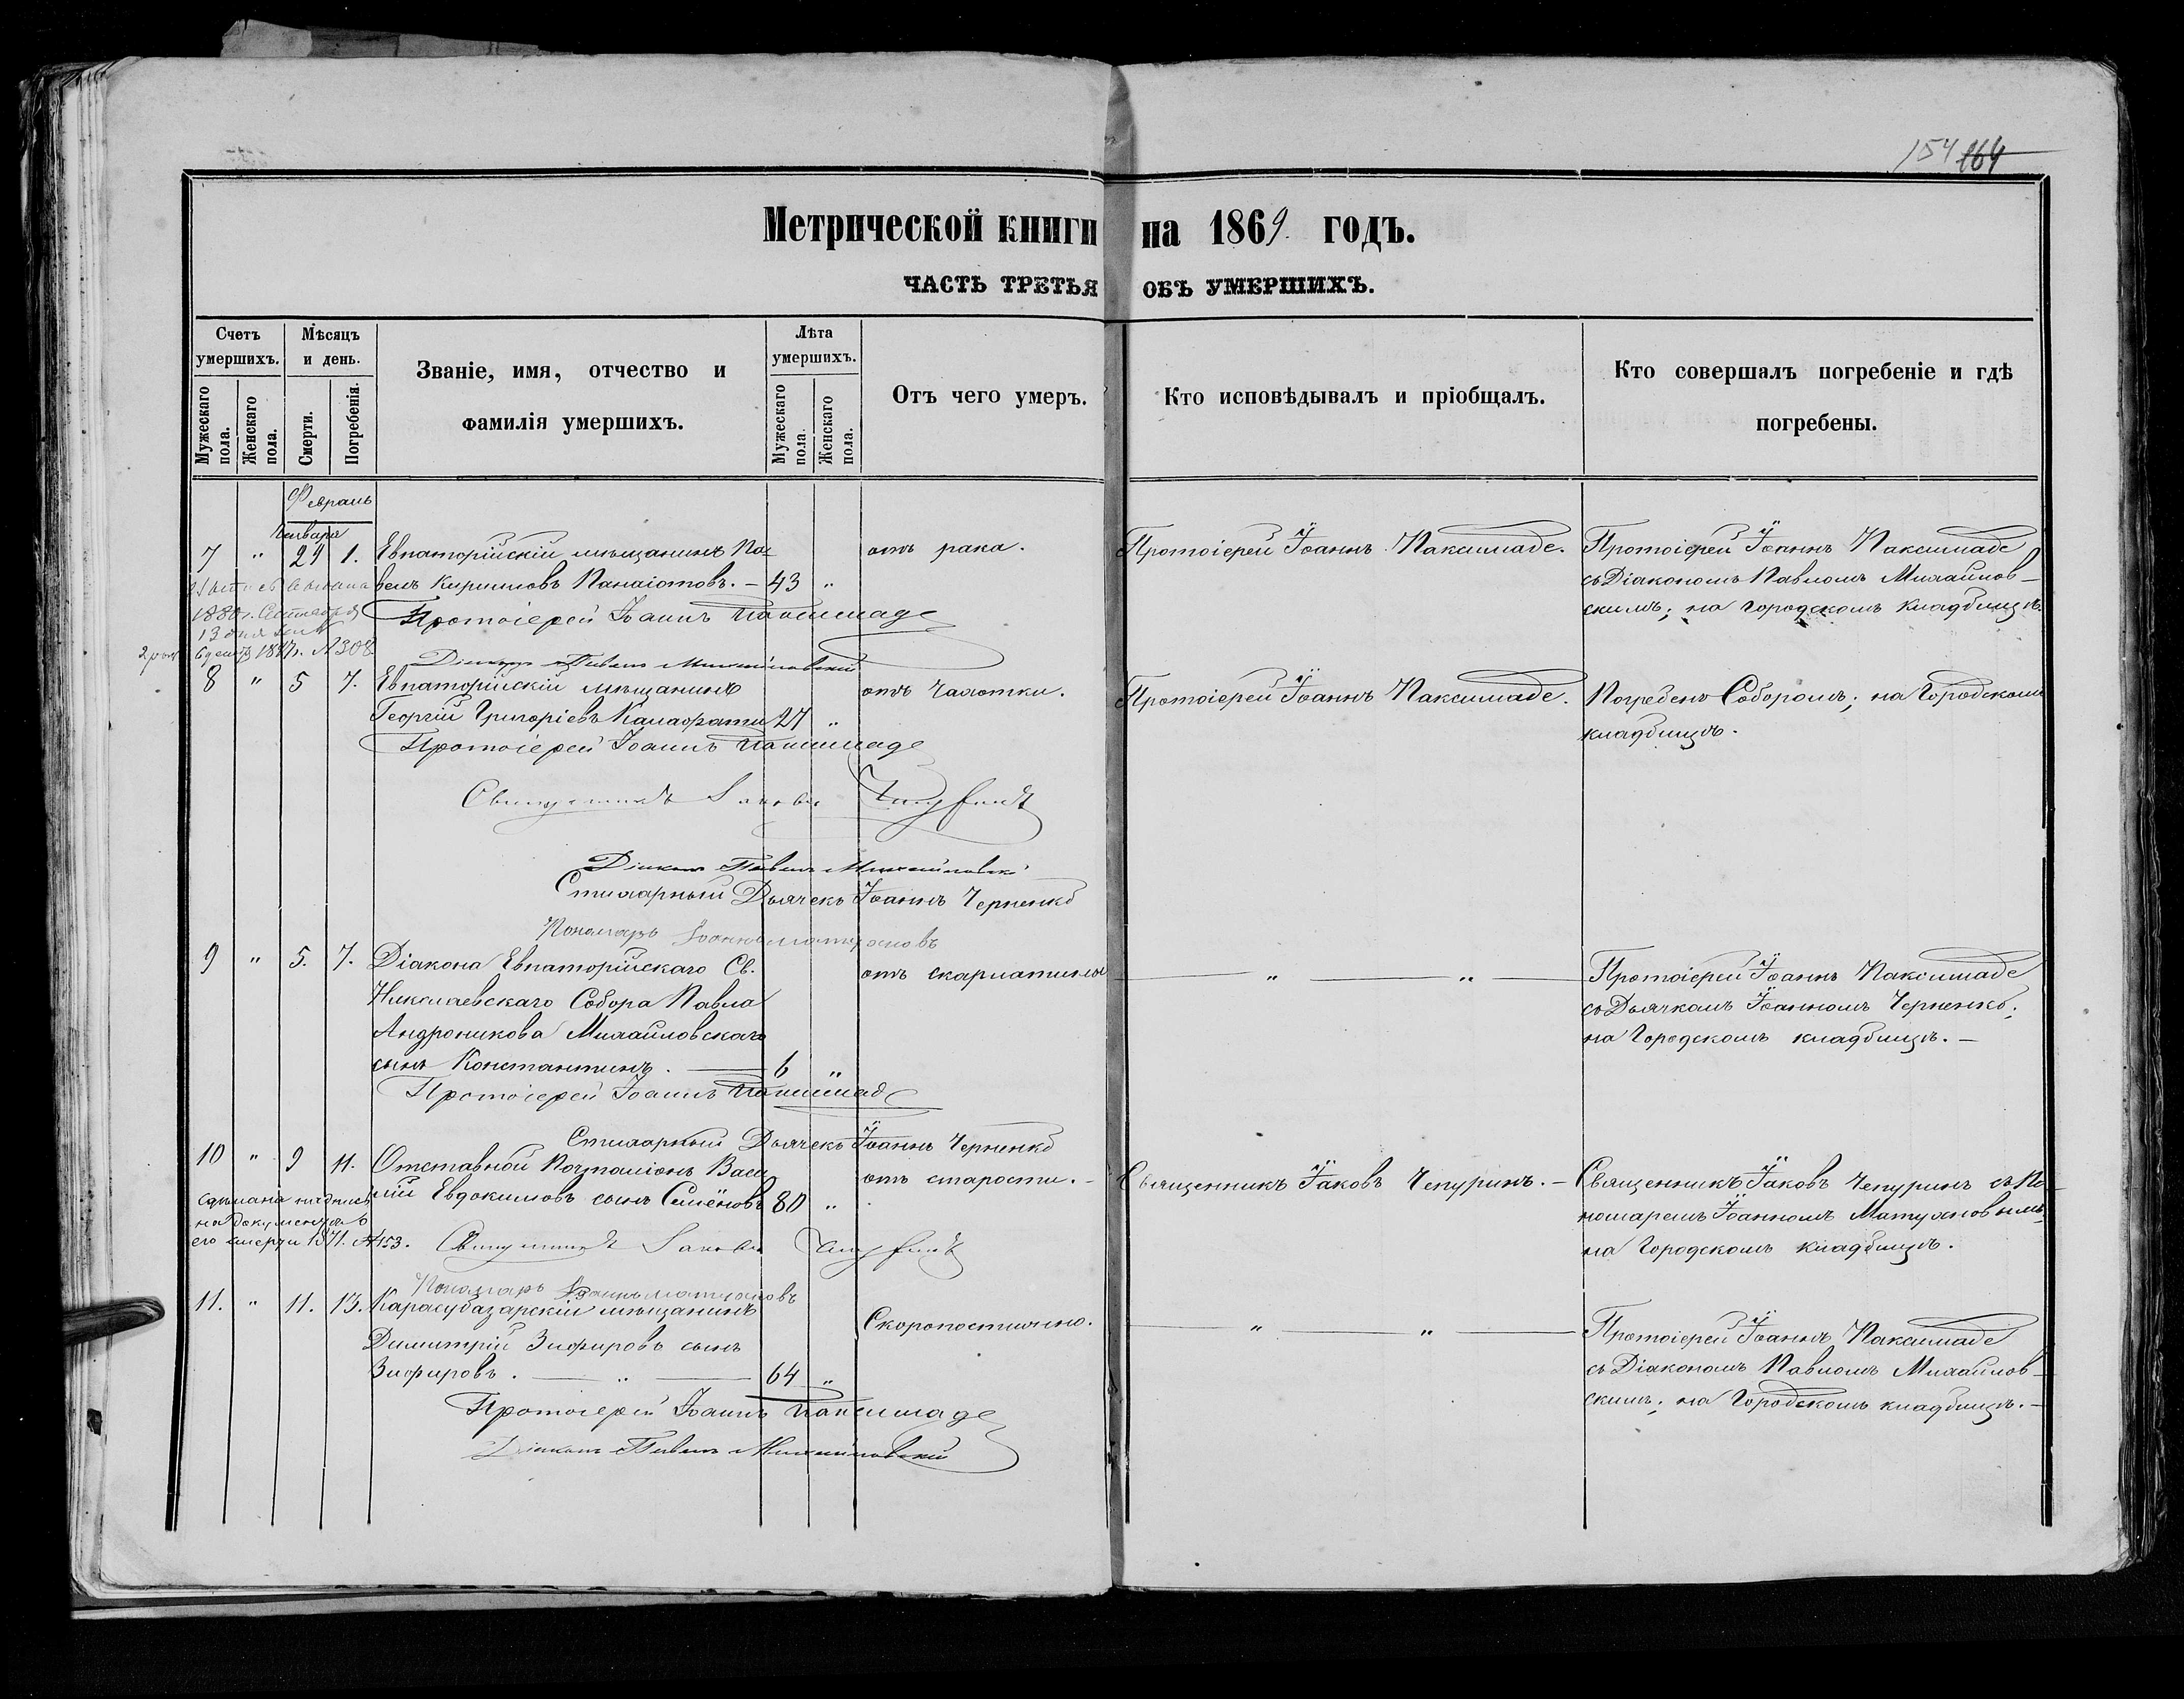 154 164
Метрической книги на 1869 годъ.
ЧАСТЬ ТРЕТЬЯ ОБЪ УМЕРШИХЪ.
Счетъ умершихъ.
Мужескаго пола.
Женскаго пола.
Мѣсяцъ и день.
Смерти.
Погребенія.
Званіе, имя, отчество и
фамилія умершихъ.
Лѣта умершихъ.
Мужескаго пола.
Женскаго пола.
Отъ чего умеръ.
Кто исповѣдывалъ и пріобщалъ.
Кто совершалъ погребеніе и гдѣ
погребены.
Февраль
Января
7 " 29 1. Евпаторійскій мѣщанинъ Па- отъ рака. Протоіерей Іоаннъ Паксимаде. Протоіерей Іоаннъ Паксимаде
велъ Кириловъ Панаіотовъ. — 43 " съ Діакономъ Павломъ Михайлов-
1880 г. Сентября Протоіерей Іоаннъ Паксимаде скимъ; на Городскомъ кладбищѣ.
13 дня
1887 г. № 308
Діаконъ Павелъ Михайловскій
8 " 5 7. Евпаторійскій мѣщанинъ отъ чахотки. Протоіерей Іоаннъ Паксимаде. Погребенъ Соборомъ; на Городскомъ
Георгій Григоріевъ Калафати 27 " кладбищѣ.
Протоіерей Іоаннъ Паксимаде
Священникъ Іаковъ Чепуринъ
Діаконъ Павелъ Михайловскій
Стихарный Дьячекъ Іоаннъ Черненко
Пономарь Іоаннъ Матухновъ
9 " 5. 7. Діакона Евпаторійскаго Св. отъ скарлатины — " — " — Протоіерей Іоаннъ Паксимаде
Николаевскаго Собора Павла съ Дьячкомъ Іоанномъ Черненко;
Андроникова Михайловскаго на Городскомъ кладбищѣ. —
сынъ Константинъ. — 6 "
Протоіерей Іоаннъ Паксимаде
Стихарный Дьячекъ Іоаннъ Черненко
10 " 9 11. Отставной Почталіонъ Васи- отъ старости. — Священникъ Іаковъ Чепуринъ. — Священникъ Іаковъ Чепуринъ съ По-
лій Евдокимовъ сынъ Семёновъ 80 " номаремъ Іоанномъ Матухновымъ;
сдѣлана надпись
на документѣ о
его смерти 1871. № 153. Священникъ Іаковъ Чепуринъ на Городскомъ кладбищѣ.
Пономарь Іоаннъ Матухновъ
11. " 11. 13. Карасубазарскій мѣщанинъ Скоропостижно. — " — " — Протоіерей Іоаннъ Паксимаде
Димитрій Зифировъ сынъ съ Діакономъ Павломъ Михайлов-
Зифировъ. — " — 64 " скимъ; на Городскомъ кладбищѣ. —
Протоіерей Іоаннъ Паксимаде
Діаконъ Павелъ Михайловскій